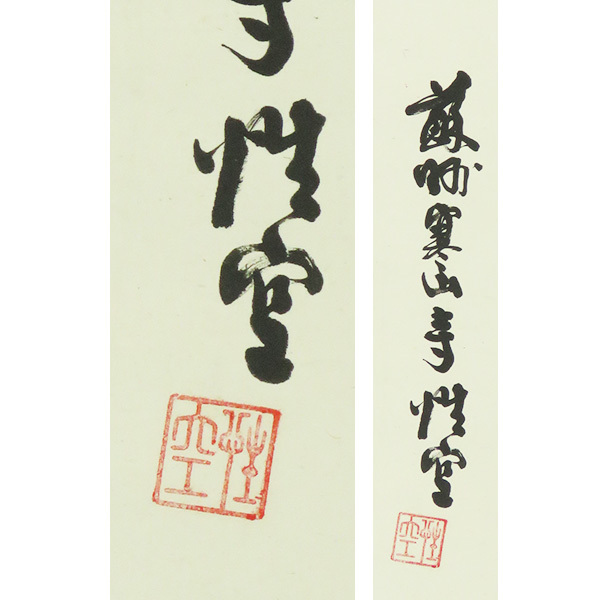 寺性空
性空
蘇州寒山寺性空
性空